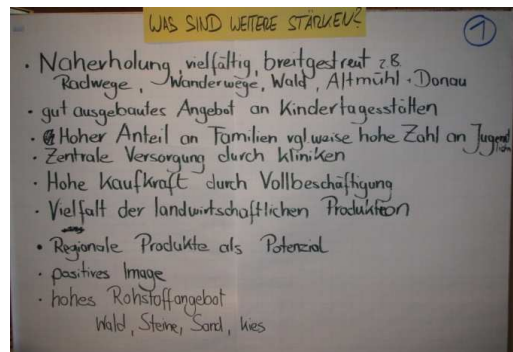 WAS SIND WEITERE STÄRKEN?
1
· Naherholung, vielfältig, breitgestreut z.B.
Radwege, Wanderwege, Wald, Altmühl + Donau
· gut ausgebautes Angebot an Kindertagesstätten
· Hoher Anteil an Familien vgl.waise hohe Zahl an Jugendlichen
· Zentrale Versorgung durch Kliniken
· Hohe Kaufkraft durch Vollbeschäftigung
· Vielfalt der landwirtschaftlichen Produktion
· Regionale Produkte als Potenzial
· positives Image
· hohes Rohstoffangebot
Wald, Steine, Sand, Kies